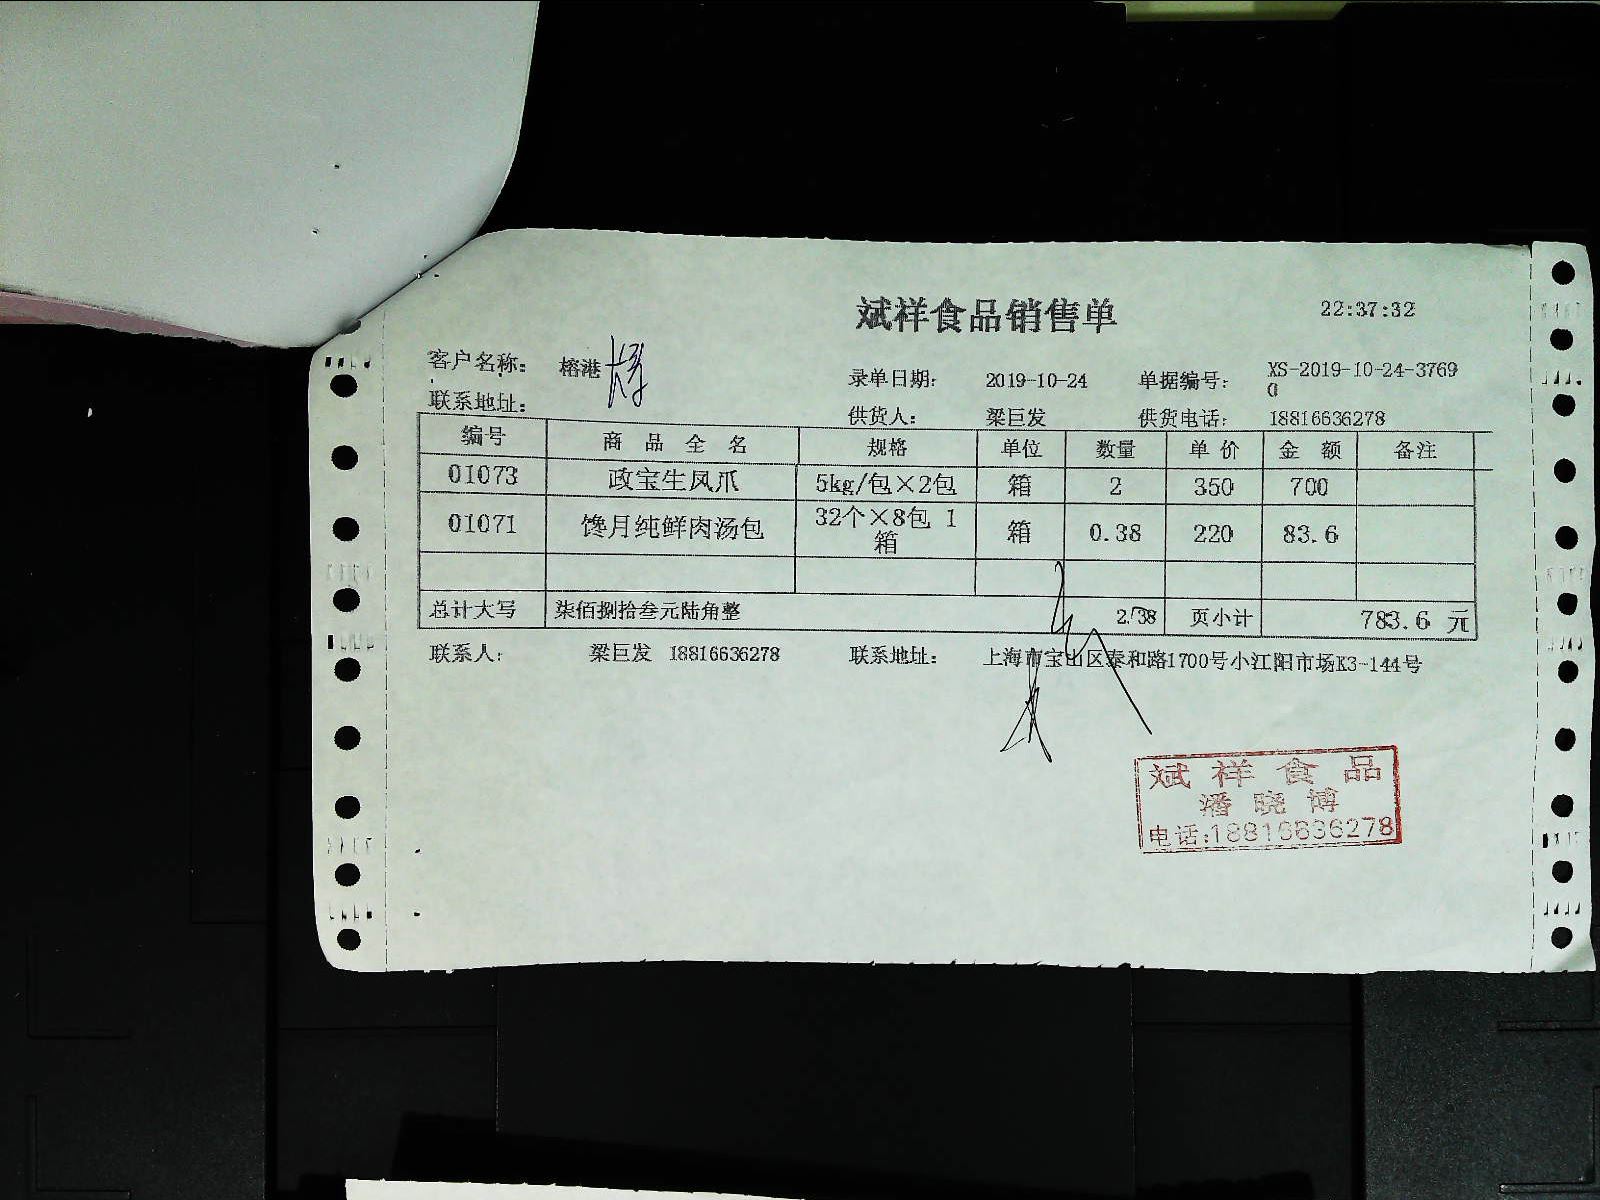 斌祥食品销售单 22:37:32
客户名称： 榕港 录单日期： 2019-10-24 单据编号： XS-2019-10-24-3769
0
联系地址： 供货人： 梁巨发 供货电话： 18816636278
编号 商 品 全 名 规格 单位 数量 单 价 金 额 备注
01073 政宝生凤爪 5kg/包×2包 箱 2 350 700
01071 馋月纯鲜肉汤包 32个×8包 1 箱 0.38 220 83.6
箱
总计大写 柒佰捌拾叁元陆角整 2.38 页小计 783.6 元
联系人： 梁巨发 18816636278 联系地址： 上海市宝山区泰和路1700号小江阳市场K3-144号
斌祥食品
潘晓博
电话:18816636278